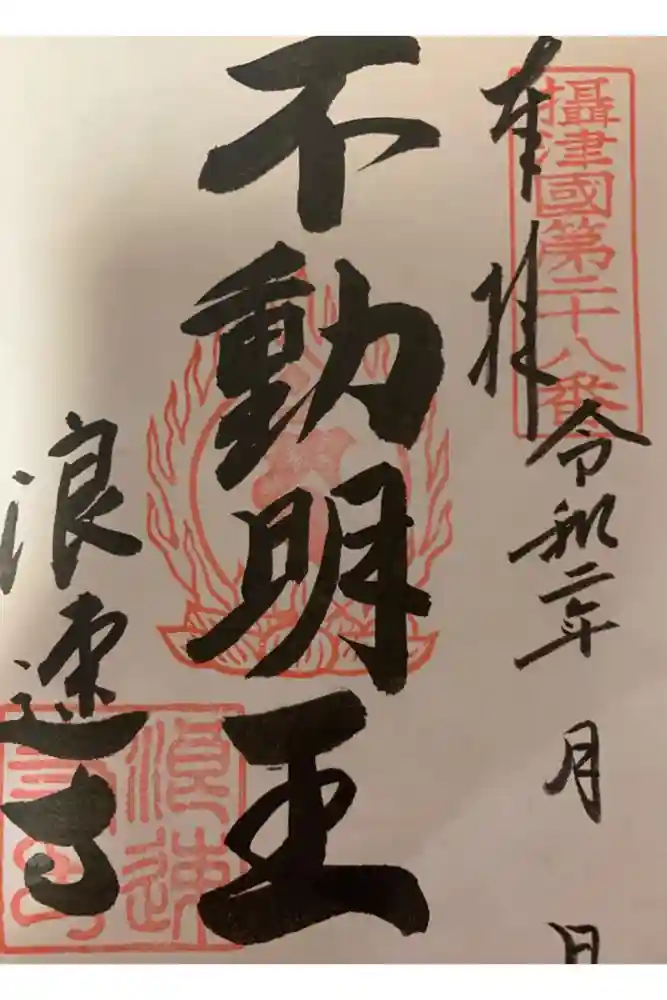 攝津國第二十八番
奉拝
令和二年 月 日
不動明王
浪速寺